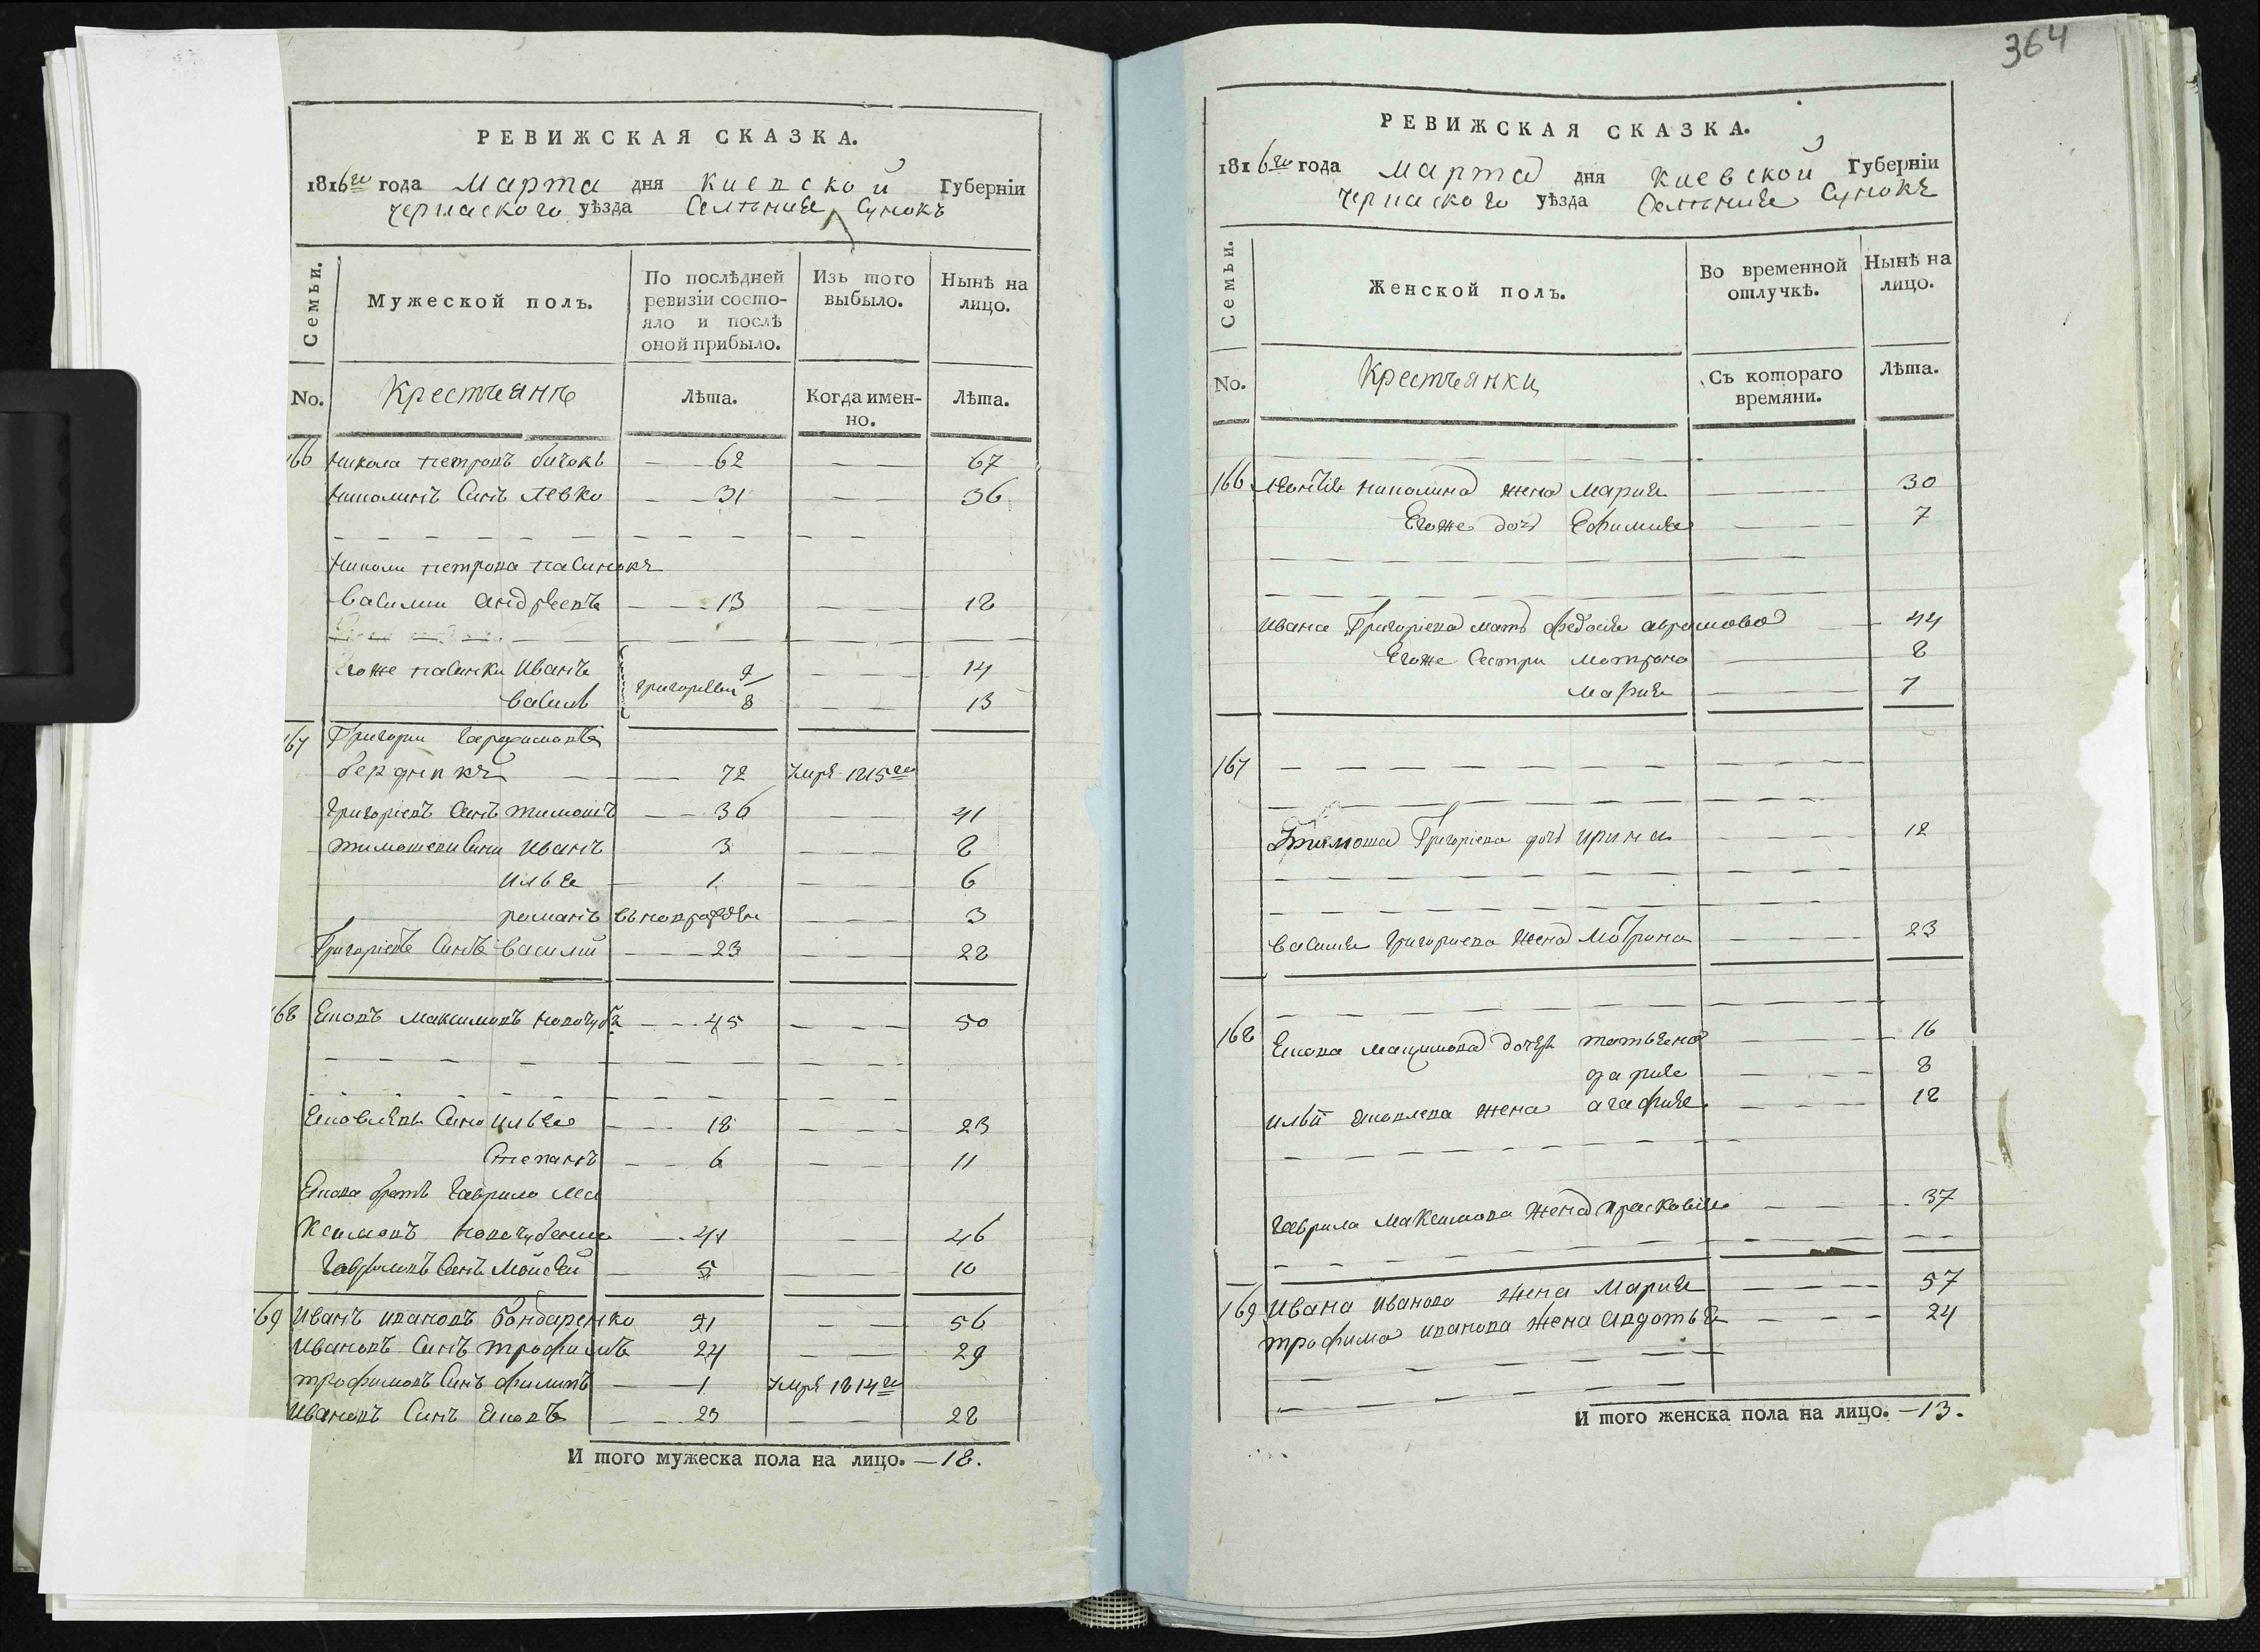 364
РЕВИЖСКАЯ СКАЗКА.
1816го года Марта дня Киевской Губерніи
Черкаского уѣзда Селѣния Сунокъ
Семьи. Мужеской полъ. По послѣдней ревизіи состояло и послѣ оной прибыло. Изъ того выбыло. Нынѣ на лицо.
No. Крестъяне Лѣта. Когда именно. Лѣта.
166 Никола Петровъ бичокъ 62 67
Николинъ Синъ Левко 31 36
Николи Петрова пасинокъ
Василии Андреевъ 13 18
Егоже пасинки Иванъ Григориеви 9 14
Василь 8 13
167 Григории
72 Умре 1815го
Григориевъ Синъ Тимошъ 36 41
Тимошеви Сини Иванъ 3 8
Илья 1 6
романъ вновѣ рожден 3
Григориевъ Синъ Василий 23 28
168 Яковъ Максимовъ 45 50
Яковлевъ Синъ Илья 18 23
Степанъ 6 11
Якова братъ Гаврило Ма
ксимовъ 41 46
Гавриловъ Синъ Мойсей 5 10
169 Иванъ Ивановъ Бондаренко 51 56
Ивановъ Синъ Трофимъ 24 29
Трофимовъ Синъ Филипъ 1 Умре 1814го
Ивановъ Синъ Яковъ 23 28
И того мужеска пола на лицо. — 18.
РЕВИЖСКАЯ СКАЗКА.
1816го года Марта дня Киевской Губерніи
Черкаского уѣзда Селѣния Сунокъ
Семьи. Женской полъ. Во временной отлучкѣ. Нынѣ на лицо.
No. Крестъянки Съ котораго времяни. Лѣта.
166 Николина жена Мария 30
Егоже дочь Ефимия 7
Ивана Григоріева мать Федосия 44
Егоже Сестри Мотрона 8
Мария 7
167
Тимоша Григоріева дочь Ирина 18
Василия Григориева жена Мотрона 23
168 Якова Максимова дочери Татьяна 16
Дария 8
Ильи Яковлева жена Агафия 18
Гаврила Максимова жена Прасковия 37
169 Ивана Иванова жена Мария 57
Трофима Иванова жена Авдотья 24
И того женска пола на лицо. — 13.